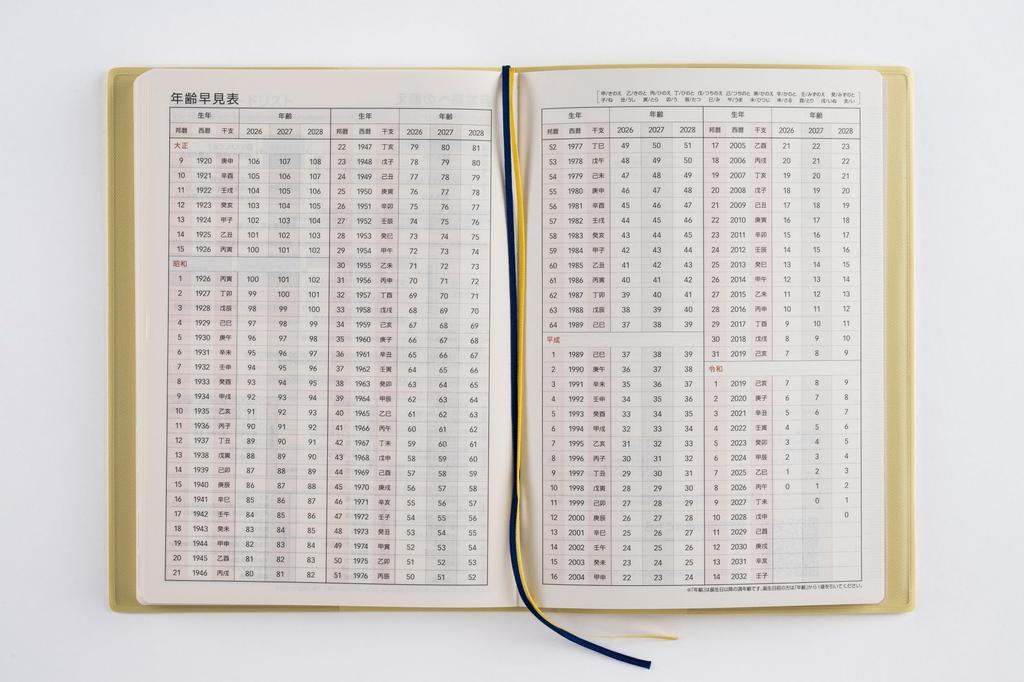 年齢早見表
生年 年齢
邦暦 西暦 干支 2026 2027 2028
大正
9 1920 庚申 106 107 108
10 1921 辛酉 105 106 107
11 1922 壬戌 104 105 106
12 1923 癸亥 103 104 105
13 1924 甲子 102 103 104
14 1925 乙丑 101 102 103
15 1926 丙寅 100 101 102
昭和
1 1926 丙寅 100 101 102
2 1927 丁卯 99 100 101
3 1928 戊辰 98 99 100
4 1929 己巳 97 98 99
5 1930 庚午 96 97 98
6 1931 辛未 95 96 97
7 1932 壬申 94 95 96
8 1933 癸酉 93 94 95
9 1934 甲戌 92 93 94
10 1935 乙亥 91 92 93
11 1936 丙子 90 91 92
12 1937 丁丑 89 90 91
13 1938 戊寅 88 89 90
14 1939 己卯 87 88 89
15 1940 庚辰 86 87 88
16 1941 辛巳 85 86 87
17 1942 壬午 84 85 86
18 1943 癸未 83 84 85
19 1944 甲申 82 83 84
20 1945 乙酉 81 82 83
21 1946 丙戌 80 81 82
生年 年齢
邦暦 西暦 干支 2026 2027 2028
22 1947 丁亥 79 80 81
23 1948 戊子 78 79 80
24 1949 己丑 77 78 79
25 1950 庚寅 76 77 78
26 1951 辛卯 75 76 77
27 1952 壬辰 74 75 76
28 1953 癸巳 73 74 75
29 1954 甲午 72 73 74
30 1955 乙未 71 72 73
31 1956 丙申 70 71 72
32 1957 丁酉 69 70 71
33 1958 戊戌 68 69 70
34 1959 己亥 67 68 69
35 1960 庚子 66 67 68
36 1961 辛丑 65 66 67
37 1962 壬寅 64 65 66
38 1963 癸卯 63 64 65
39 1964 甲辰 62 63 64
40 1965 乙巳 61 62 63
41 1966 丙午 60 61 62
42 1967 丁未 59 60 61
43 1968 戊申 58 59 60
44 1969 己酉 57 58 59
45 1970 庚戌 56 57 58
46 1971 辛亥 55 56 57
47 1972 壬子 54 55 56
48 1973 癸丑 53 54 55
49 1974 甲寅 52 53 54
50 1975 乙卯 51 52 53
51 1976 丙辰 50 51 52
甲/きのえ 乙/きのと 丙/ひのえ 丁/ひのと 戊/つちのえ 己/つちのと 庚/かのえ 辛/かのと 壬/みずのえ 癸/みずのと
子/ね 丑/うし 寅/とら 卯/う 辰/たつ 巳/み 午/うま 未/ひつじ 申/さる 酉/とり 戌/いぬ 亥/い
生年 年齢
邦暦 西暦 干支 2026 2027 2028
52 1977 丁巳 49 50 51
53 1978 戊午 48 49 50
54 1979 己未 47 48 49
55 1980 庚申 46 47 48
56 1981 辛酉 45 46 47
57 1982 壬戌 44 45 46
58 1983 癸亥 43 44 45
59 1984 甲子 42 43 44
60 1985 乙丑 41 42 43
61 1986 丙寅 40 41 42
62 1987 丁卯 39 40 41
63 1988 戊辰 38 39 40
64 1989 己巳 37 38 39
平成
1 1989 己巳 37 38 39
2 1990 庚午 36 37 38
3 1991 辛未 35 36 37
4 1992 壬申 34 35 36
5 1993 癸酉 33 34 35
6 1994 甲戌 32 33 34
7 1995 乙亥 31 32 33
8 1996 丙子 30 31 32
9 1997 丁丑 29 30 31
10 1998 戊寅 28 29 30
11 1999 己卯 27 28 29
12 2000 庚辰 26 27 28
13 2001 辛巳 25 26 27
14 2002 壬午 24 25 26
15 2003 癸未 23 24 25
16 2004 甲申 22 23 24
生年 年齢
邦暦 西暦 干支 2026 2027 2028
17 2005 乙酉 21 22 23
18 2006 丙戌 20 21 22
19 2007 丁亥 19 20 21
20 2008 戊子 18 19 20
21 2009 己丑 17 18 19
22 2010 庚寅 16 17 18
23 2011 辛卯 15 16 17
24 2012 壬辰 14 15 16
25 2013 癸巳 13 14 15
26 2014 甲午 12 13 14
27 2015 乙未 11 12 13
28 2016 丙申 10 11 12
29 2017 丁酉 9 10 11
30 2018 戊戌 8 9 10
31 2019 己亥 7 8 9
令和
1 2019 己亥 7 8 9
2 2020 庚子 6 7 8
3 2021 辛丑 5 6 7
4 2022 壬寅 4 5 6
5 2023 癸卯 3 4 5
6 2024 甲辰 2 3 4
7 2025 乙巳 1 2 3
8 2026 丙午 0 1 2
9 2027 丁未 0 1
10 2028 戊申 0
11 2029 己酉
12 2030 庚戌
13 2031 辛亥
14 2032 壬子
※「年齢」は誕生日以降の満年齢です。誕生日前の方は「年齢」から1歳を引いてください。